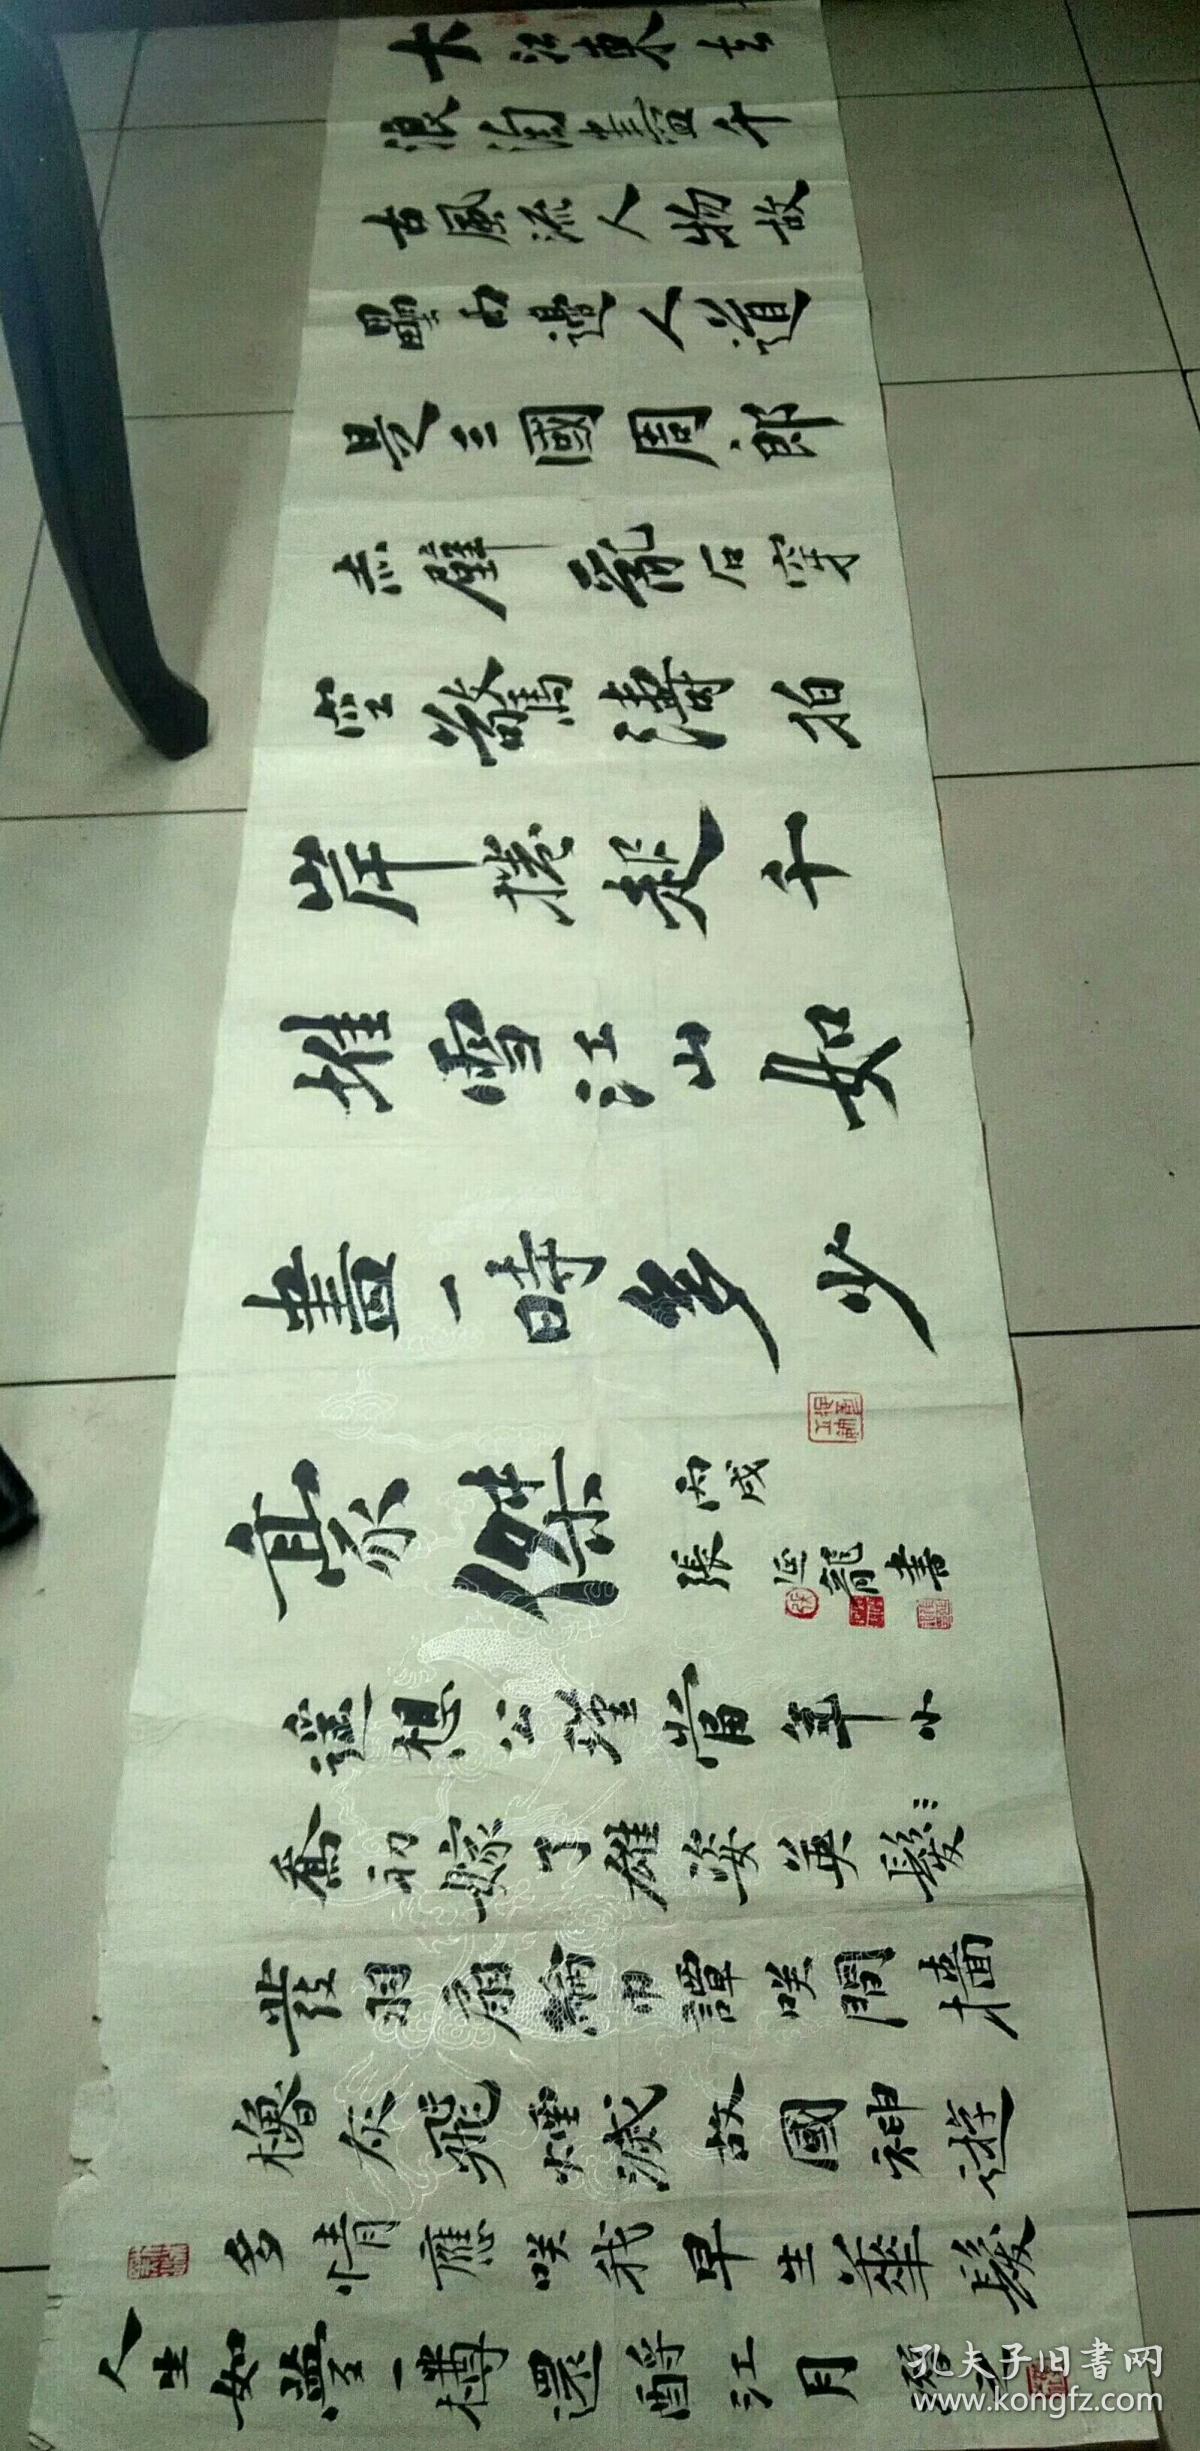 大江東去
浪淘盡千
古風流人物故
壘西邊人道
是三國周郎
赤壁亂石穿
空驚濤拍
岸捲起千
堆雪江山如
畫一時多少
豪傑
丙戌
張 龍書
遥想公瑾當年小
喬初嫁了雄姿英髮
發羽扇綸巾談咲間墙
櫓灰飛煙滅故國神遊
多情應咲我早生華髮
人生如夢一樽還酹江月
孔夫子旧书网
www.kongfz.com